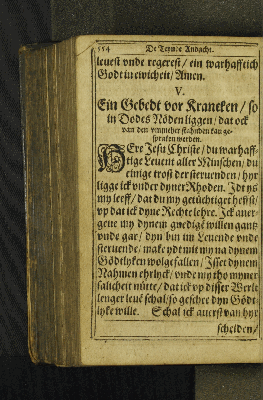 554 De Teynde Andacht.
leuest vnde regerest / ein warhafftich
Godt in ewicheit / Amen.
V.
Ein Gebedt vor Krancken / so
in Dodes Nöden liggen / dat ock
van den vmmeher stahnden kan ge-
spraken werden.
HERE Jesu Christe / du warhaff-
tige Leuent aller Minschen / du
einige trost der steruenden / hyr
ligge ick vnder dyner Rhoden. Idt ys
my leeff / dat du my getüchtiget heffst /
vp dat ick dyne Rechte lehre. Ick auer-
geue my dynem gnedigē willen gantz
vnde gar / dyn bin im Leuende vnde
steruende / make ydt mit my na dynem
Gödtlyken wolgefallen / Isset dynem
Nahmen ehrlyck / vnde my tho myner
salicheit nütte / dat ick vp disser Werlt
lenger leuē schal / so geschee dyn Gödt-
lyke wille. Schal ick auerst van hyr
scheiden /